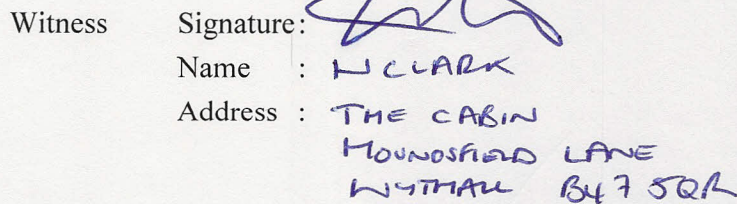 Witness Signature:
Name : N CLARK
Address : THE CABIN
HOUNDSFIELD LANE
WYTHALL B47 5QR